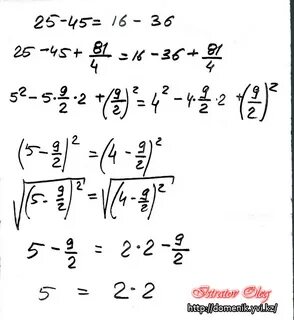 25-45=16-36
25-45+81/4=16-36+81/4
5²-5·9/2·2+(9/2)²=4²-4·9/2·2+(9/2)²
(5-9/2)²=(4-9/2)²
√(5-9/2)²=√(4-9/2)²
5-9/2=2·2-9/2
5=2·2
Istrator Oleg
http://domenik.yvi.kz/